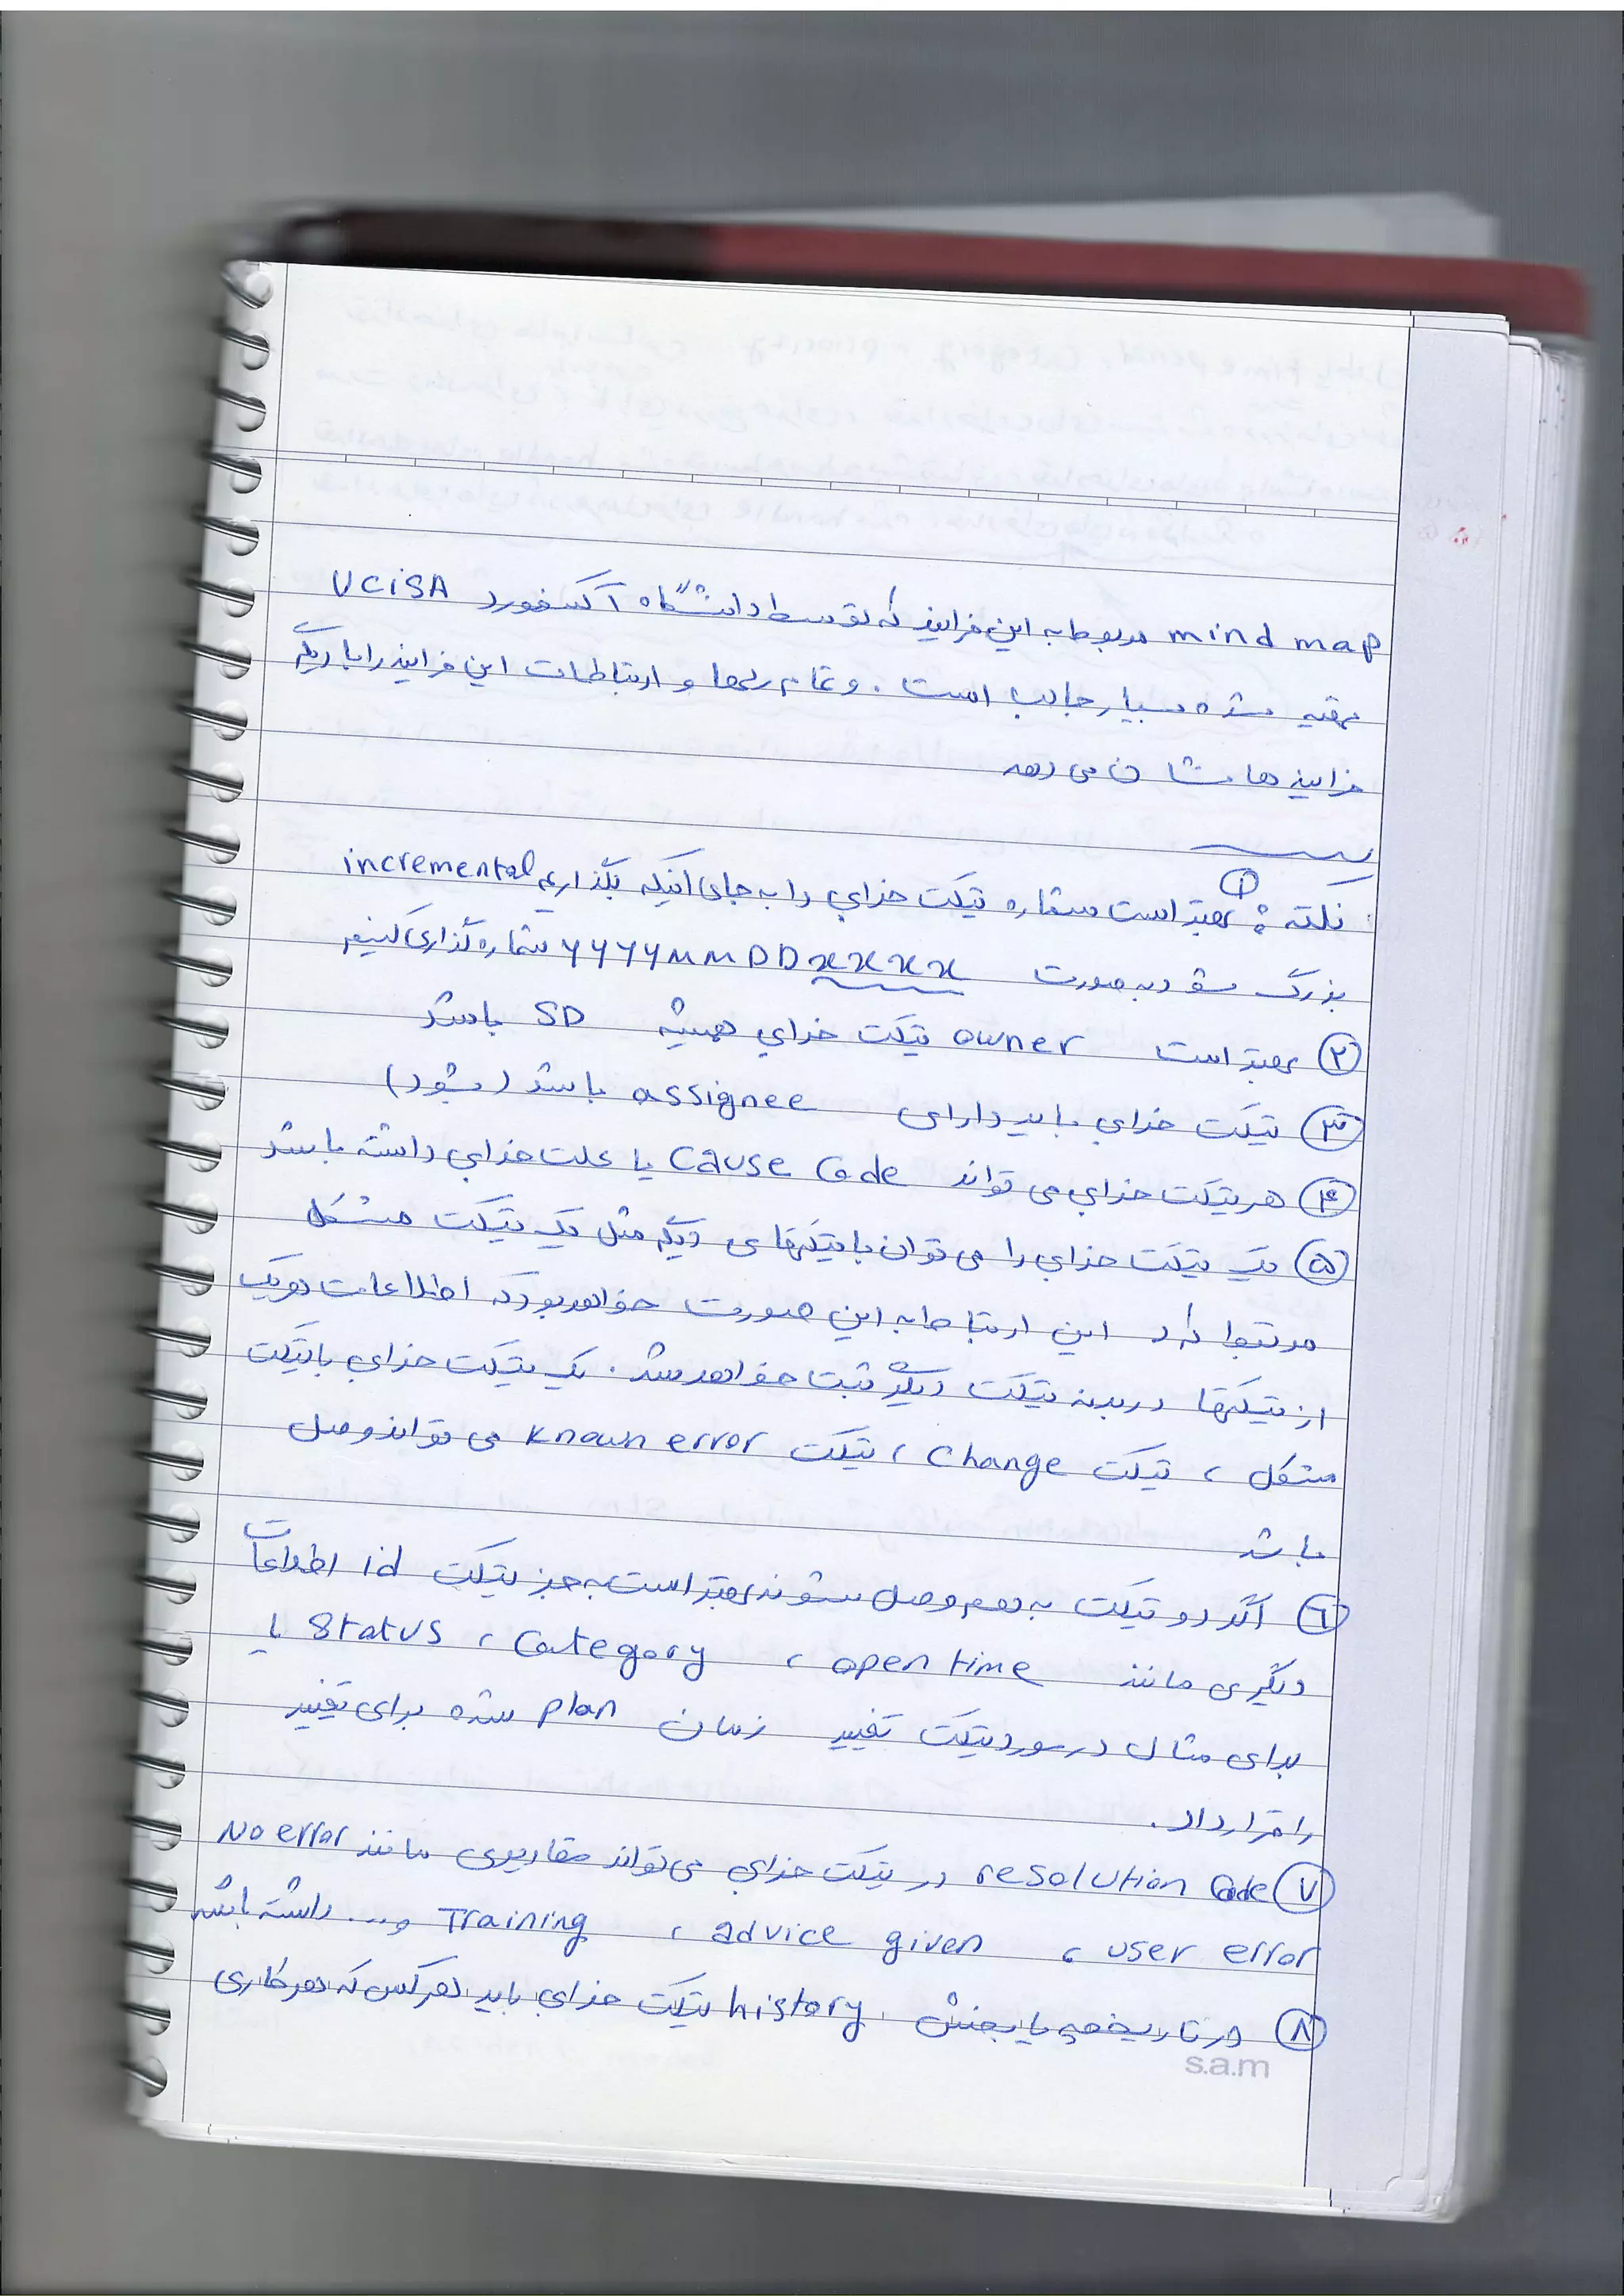 mind map مربوط به این فرایند که توسط دانشگاه آکسفورد UCISA
تهیه شده بسیار جالب است. و تمام رلها و ارتباطات این فرایند را با دیگر
فرایند ها نشان می دهد
نکته: ① بهتر است شماره تیکت خرابی را به جای اینکه بگذاریم incremental
بزرگ شود به صورت YYYYMMDDXXXX شماره گذاری کنیم
② بهتر است owner تیکت خرابی همیشه SD باشد
③ تیکت خرابی باید دارای assignee باشد (بشود)
④ هر تیکت خرابی می تواند Cause Code یا علت خرابی داشته باشد
⑤ یک تیکت خرابی را می توان با تیکتهای دیگر مثل یک تیکت مشکل
مرتبط کرد این ارتباط به این صورت خواهد بود که اطلاعات هر یک
از تیکتها در بدنه تیکت دیگر ثبت خواهد شد. یک تیکت خرابی با تیکت
مشکل ، تیکت Change ، تیکت known error می تواند وصل
باشد
⑥ اگر دو تیکت به هم وصل شوند بهتر است به جز تیکت id اطلاعات
دیگری مانند open time ، Category ، Status یا
برای مثال در مورد تیکت تغییر زمان plan شده برای تغییر
را قرار داد.
⑦ resolution Code در تیکت خرابی می تواند مقادیری مانند No error
user error ، advice given ، Training و... داشته باشد
⑧ در تاریخچه یا بخش history تیکت خرابی باید هر کس که هر کاری
s.a.m